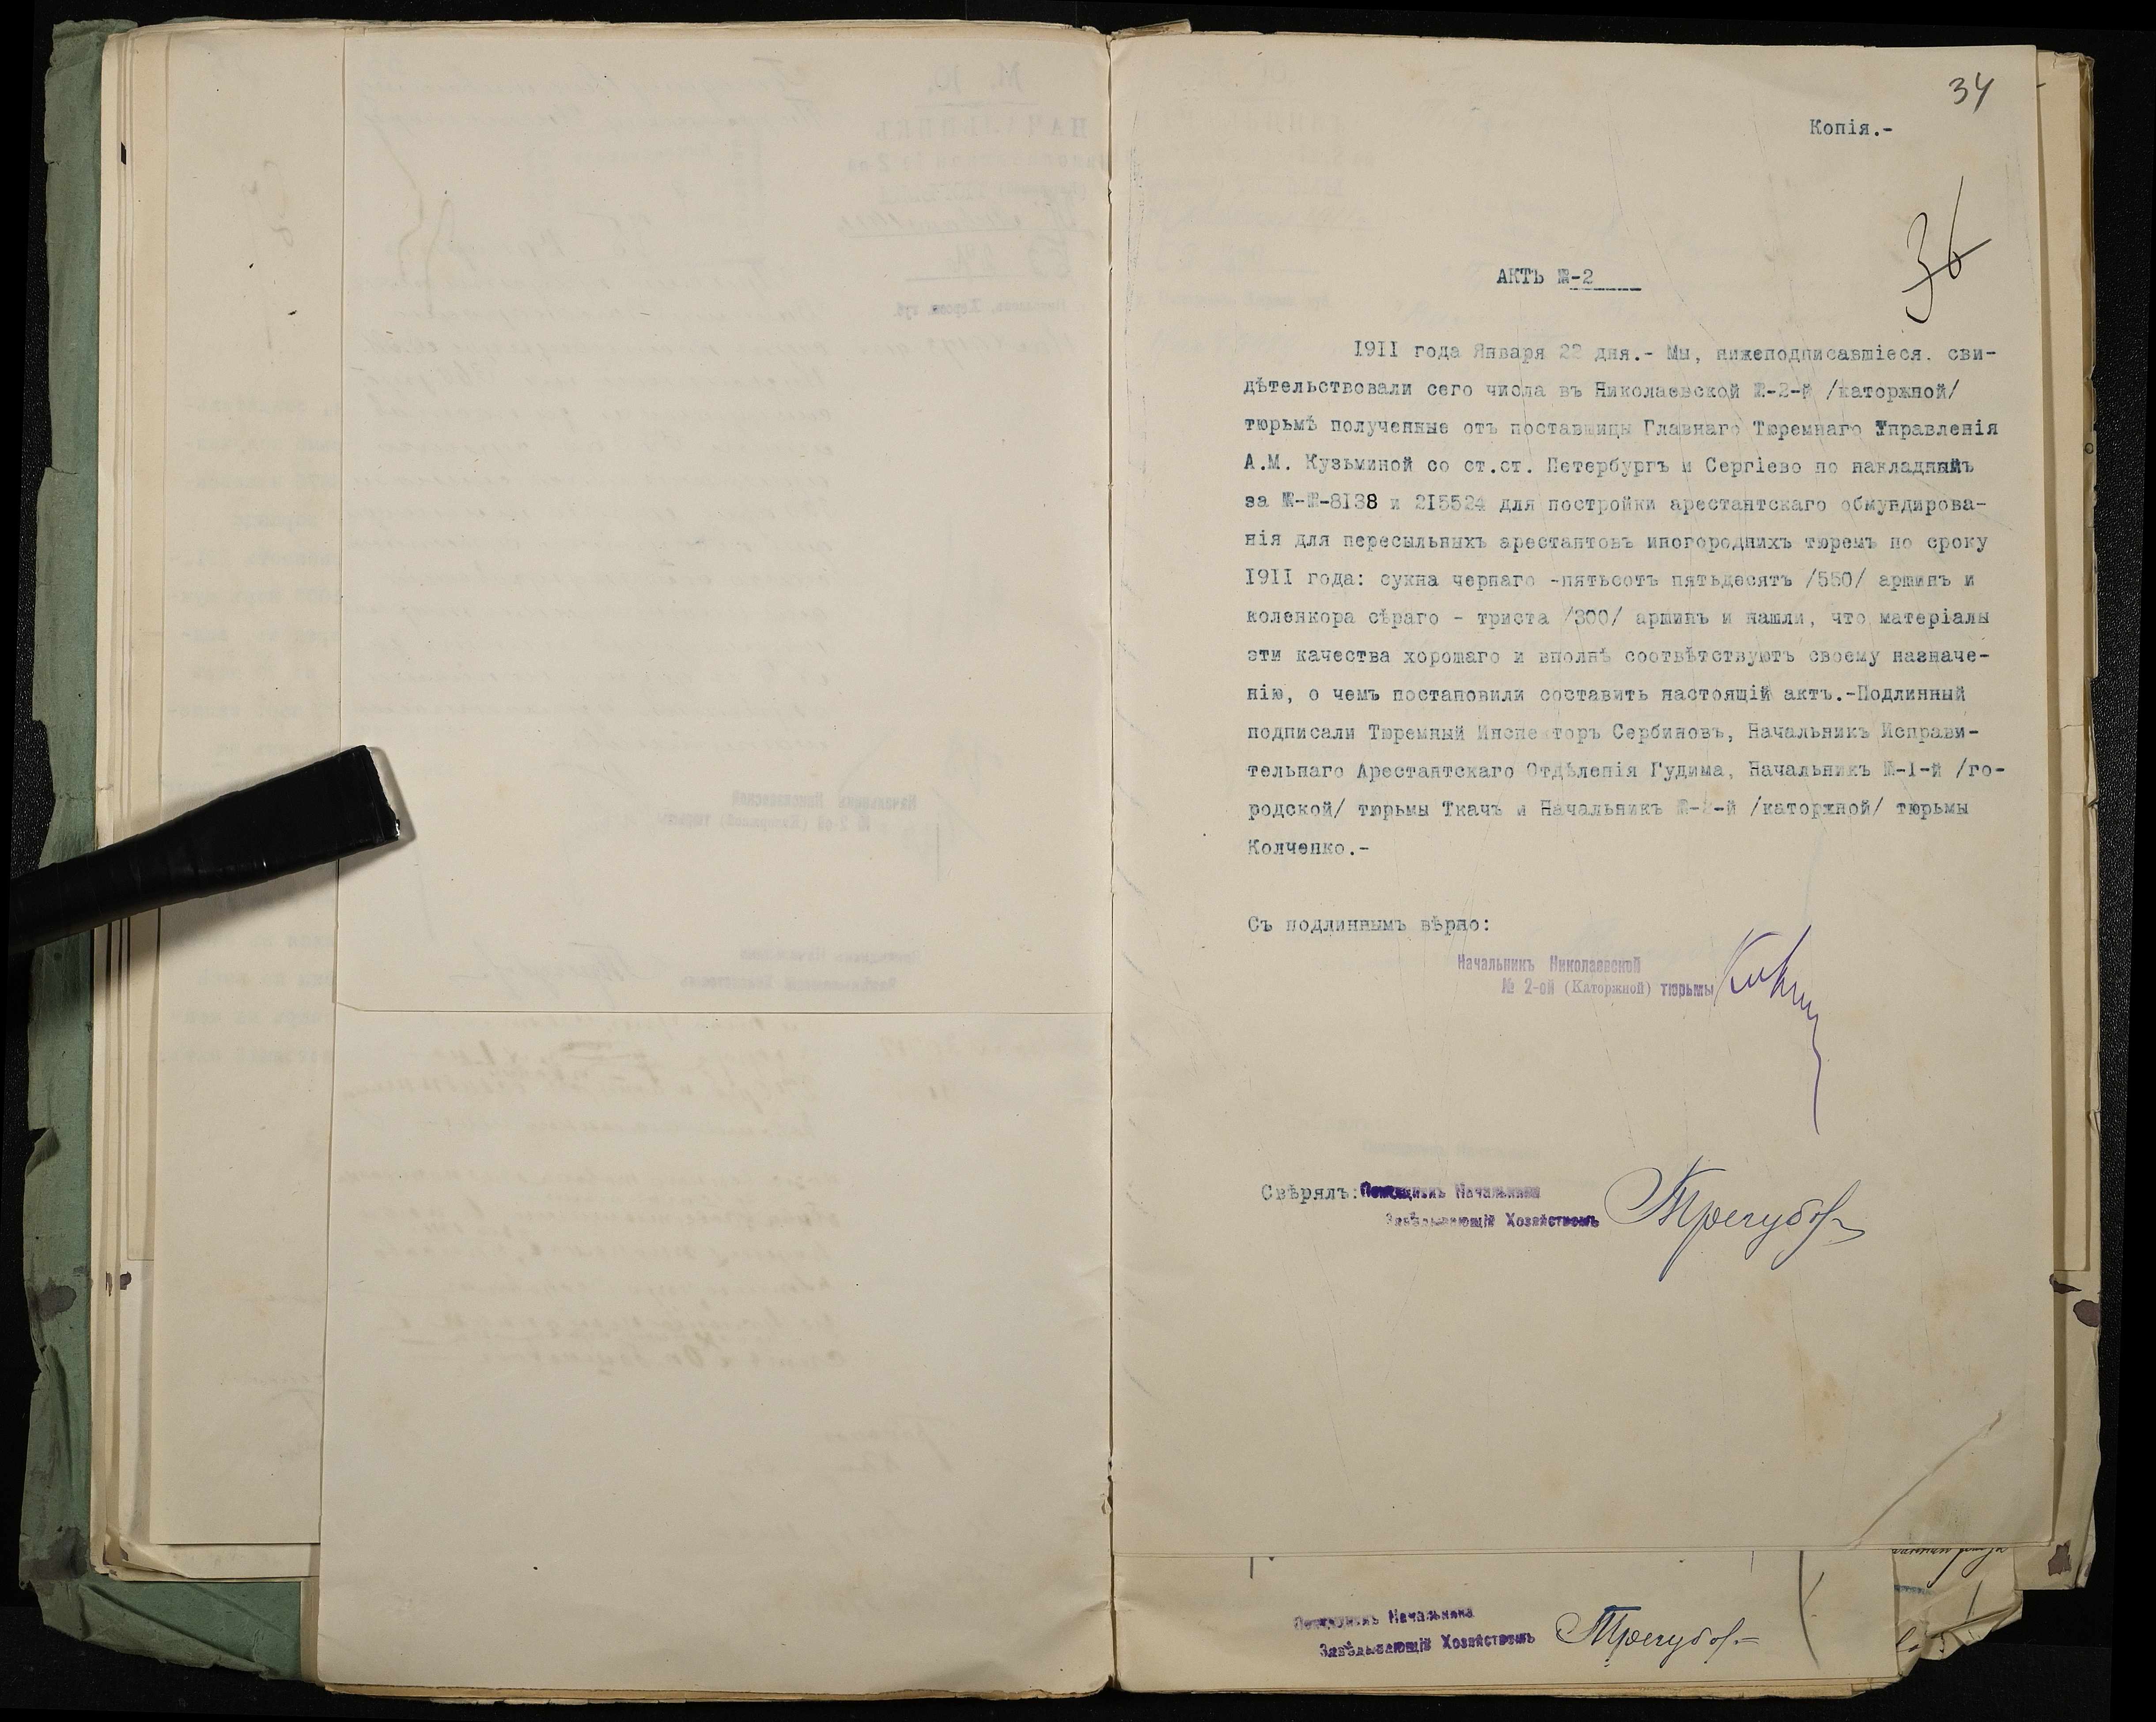 34
Копія.-
36
АКТЪ №-2
1911 года Января 22 дня.- Мы, нижеподписавшіеся. сви-
дѣтельствовали сего числа въ Николаевской №-2-й /каторжной/
тюрьмѣ полученные отъ поставщицы Главнаго Тюремнаго Управленія
А.М. Кузьминой со ст.ст. Петербургъ и Сергіево по накладнымъ
за №-№-8138 и 215524 для постройки арестантскаго обмундирова-
нія для пересыльныхъ арестантовъ иногороднихъ тюремъ по сроку
1911 года: сукна чернаго -пятьсотъ пятьдесятъ /550/ аршинъ и
коленкора сѣраго - триста /300/ аршинъ и нашли, что матеріалы
эти качества хорошаго и вполнѣ соотвѣтствуютъ своему назначе-
нію, о чемъ постановили составить настоящій актъ.-Подлинный
подписали Тюремный Инспекторъ Сербиновъ, Начальникъ Исправи-
тельнаго Арестантскаго Отдѣленія Гудима, Начальникъ №-1-й /го-
родской/ тюрьмы Ткачъ и Начальникъ №-2-й /каторжной/ тюрьмы
Колченко.-
Съ подлиннымъ вѣрно:
Начальникъ Николаевской
№ 2-ой (Каторжной) тюрьмы
Свѣрялъ: Помощникъ Начальника
Завѣдывающій Хозяйствомъ Трегубов
Помощникъ Начальника
Завѣдывающій Хозяйствомъ Трегубов